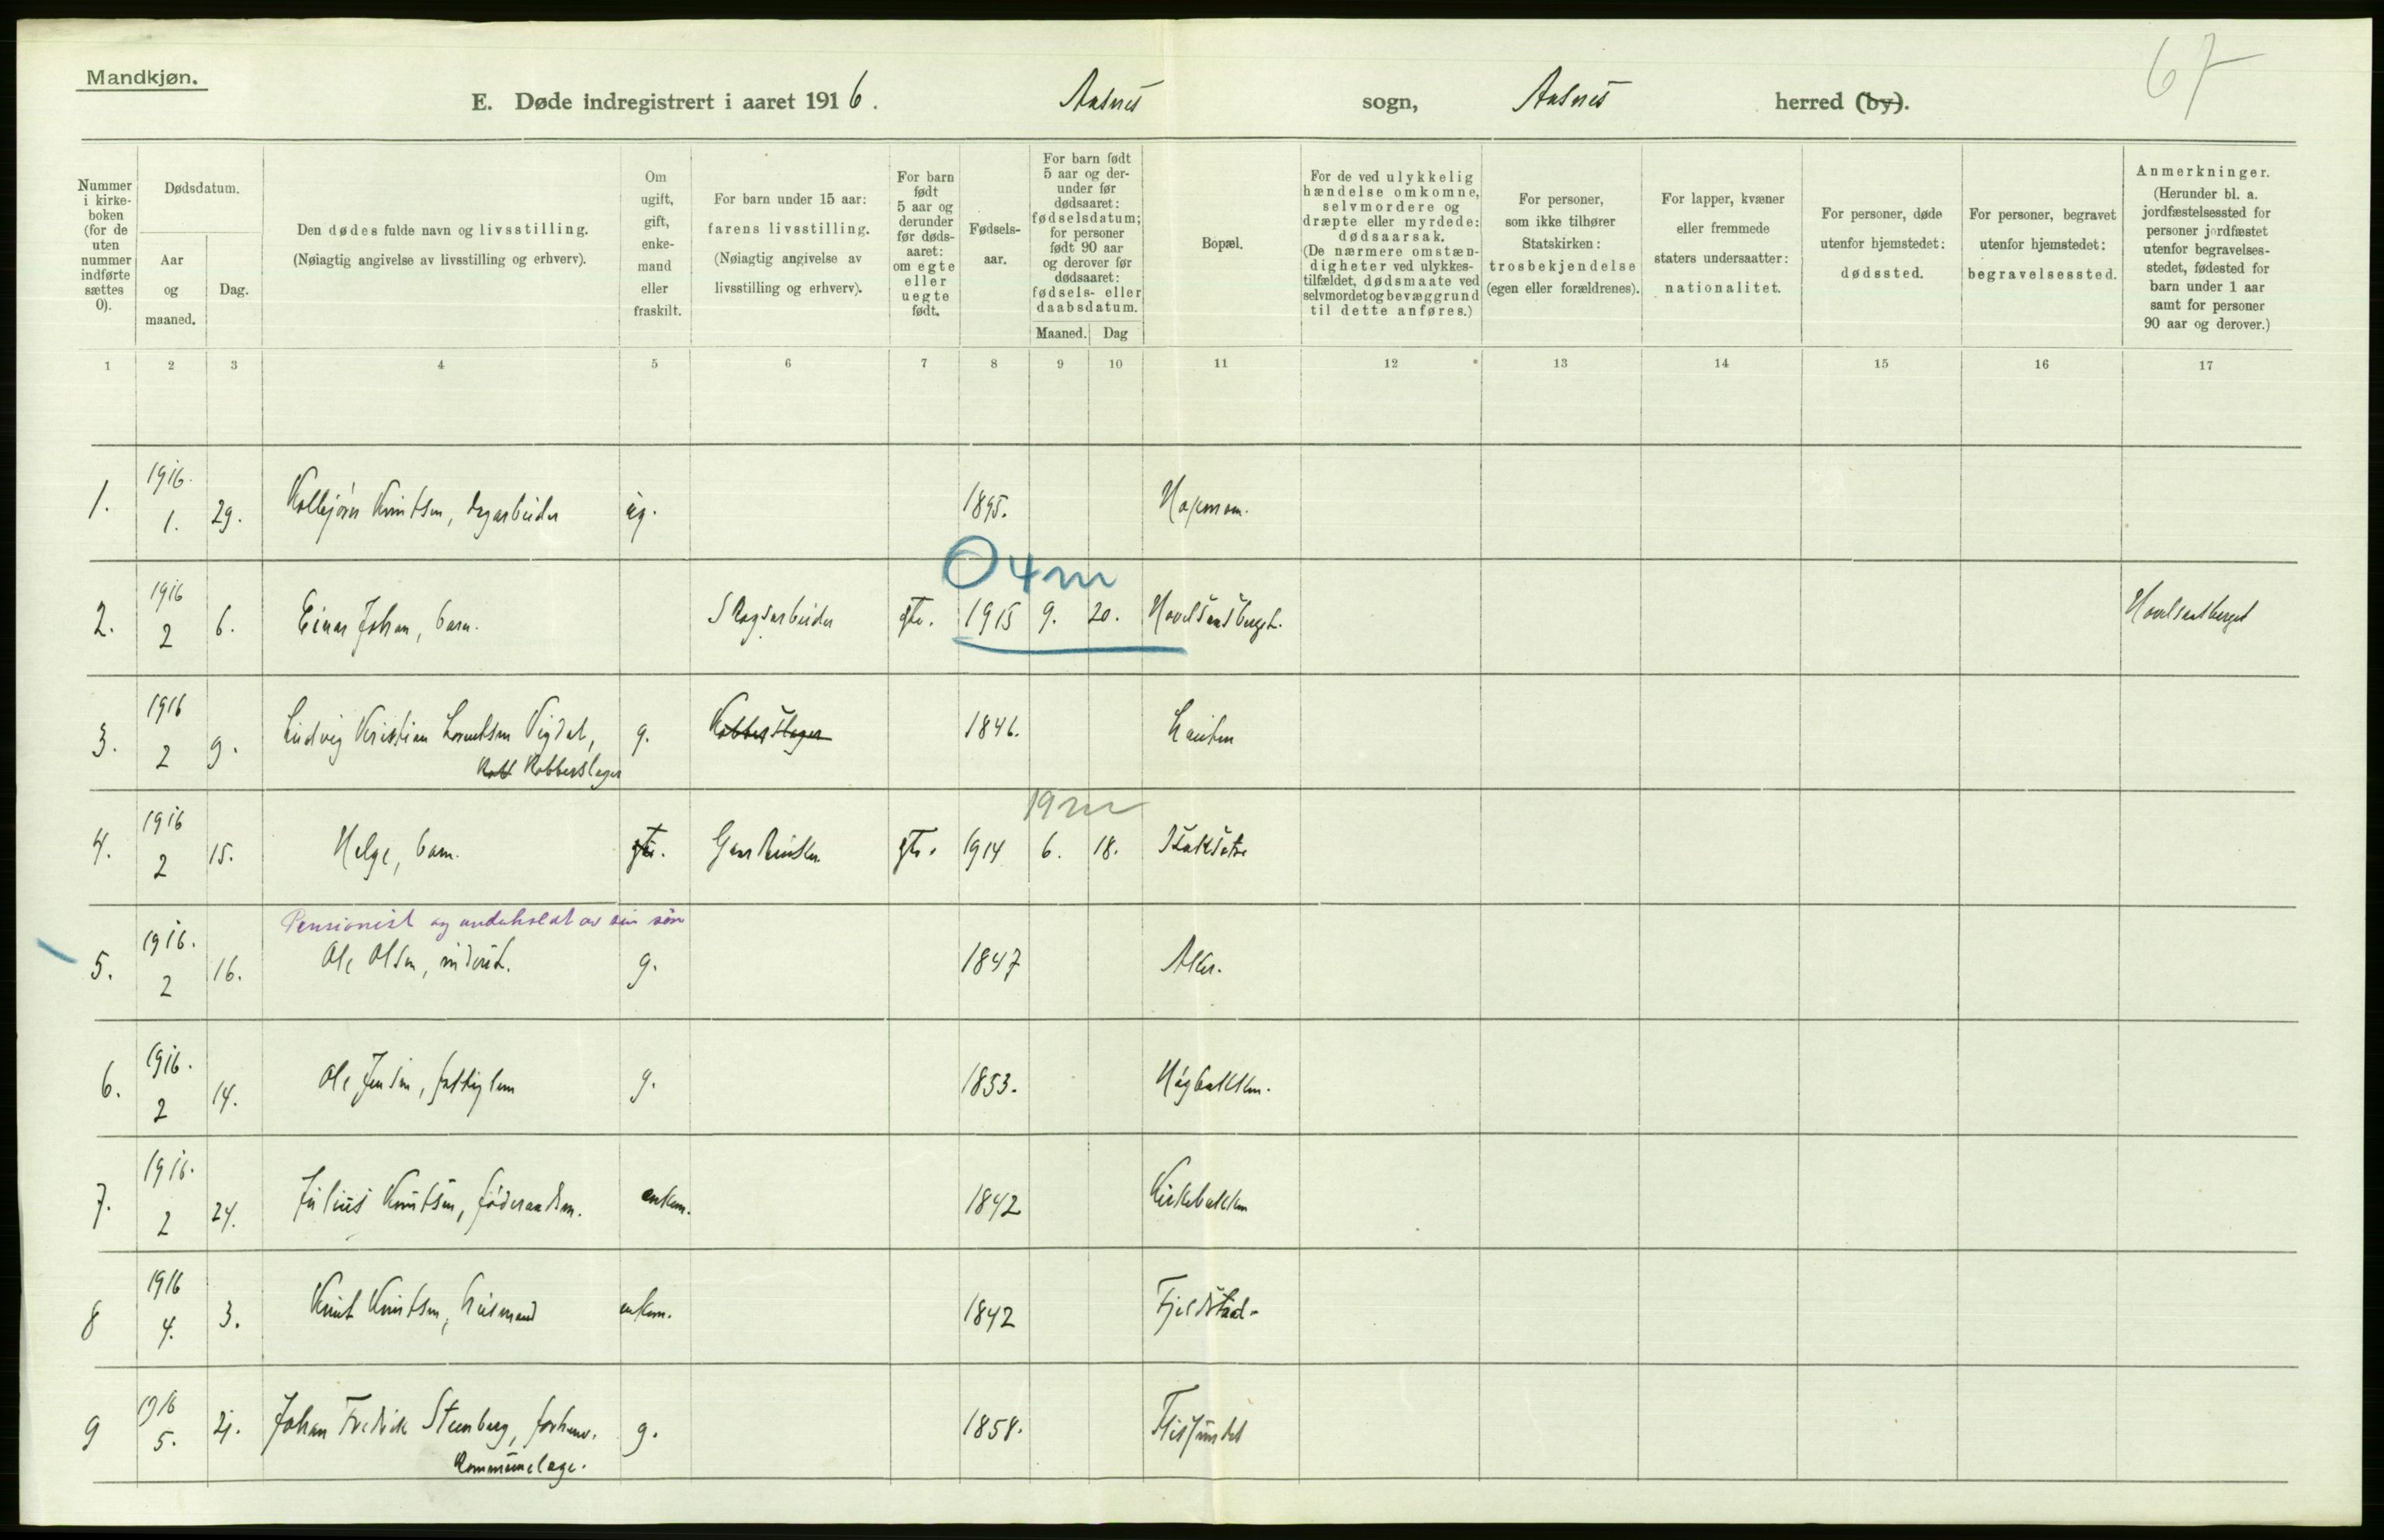 67
Mandkjøn.
E. Døde indregistrert i aaret 1916. Aasnes sogn, Aasnes herred (by).
Nummer i kirke-boken (for de uten nummer indførte sættes 0).
Dødsdatum.
Aar og maaned.
Dag.
Den dødes fulde navn og livsstilling.
(Nøiagtig angivelse av livsstilling og erhverv).
Om ugift, gift, enke-mand eller fraskilt.
For barn under 15 aar: farens livsstilling.
(Nøiagtig angivelse av livsstilling og erhverv).
For barn født 5 aar og derunder før døds-aaret: om egte eller uegte født.
Fødsels-aar.
For barn født 5 aar og der-under før dødsaaret: fødselsdatum; for personer født 90 aar og derover før dødsaaret: fødsels- eller daabsdatum.
Maaned. Dag
Bopæl.
For de ved ulykkelig hændelse omkomne, selvmordere og dræpte eller myrdede: dødsaarsak.
(De nærmere omstæn-digheter ved ulykkes-tilfældet, dødsmaate ved selvmordet og bevæggrund til dette anføres.)
For personer, som ikke tilhører Statskirken: trosbekjendelse (egen eller forældrenes).
For lapper, kvæner eller fremmede staters undersaatter: nationalitet.
For personer, døde utenfor hjemstedet: dødssted.
For personer, begravet utenfor hjemstedet: begravelsessted.
Anmerkninger.
(Herunder bl. a. jordfæstelsessted for personer jordfæstet utenfor begravelses-stedet, fødested for barn under 1 aar samt for personer 90 aar og derover.)
1 2 3 4 5 6 7 8 9 10 11 12 13 14 15 16 17
1. 1916. 1. 29. Kolbjørn Knutsen, dagarbeider ug. 1895.
0 4 m
2. 1916 2 6. Einar Johan, barn. Skogsarbeider gte. 1915 9. 20.
3. 1916 2 9. Ludvig Kristian Lorentsen Vigdal, g. Kobberslager 1846.
Kobberslager
19 m
4. 1916 2 15. Helge, barn. gte. Gaardbruker gte. 1914 6. 18.
Pensionist og underholdt av sin søn
5. 1916. 2 16. Ole Olsen, inderst. g. 1847 Aker.
6. 1916. 2 14. Ole Jensen, fattiglem g. 1853. Høgbakken.
7. 1916. 2 24. Julius Knutsen, føderaadsm. enkem. 1842 Kirkebakken
8 1916 4. 3. Knut Knutsen, husmand enkem. 1842 Fjeldstad.
9 1916 5. 21. Johan Fredrik Steenberg, forhenv. g. 1858. Flissundet
Kommunelæge.